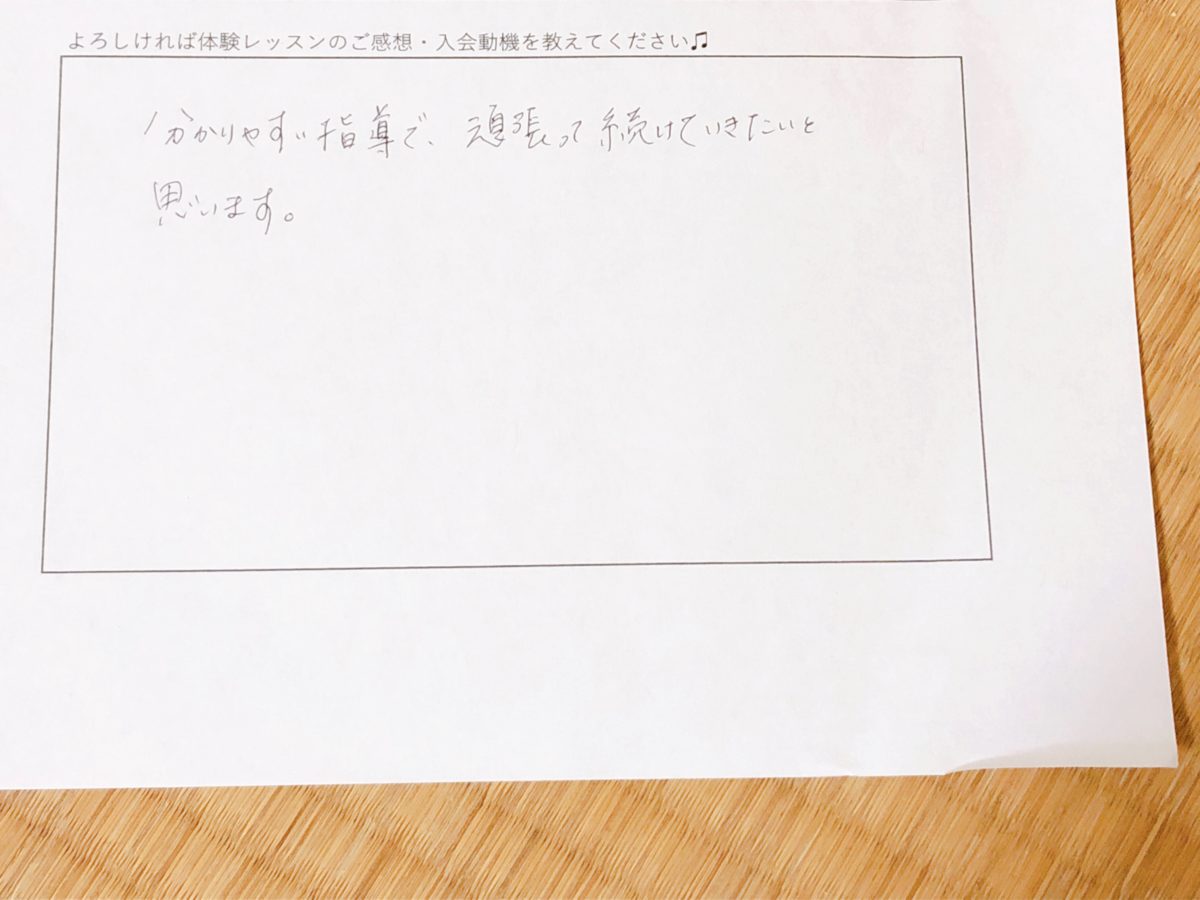 よろしければ体験レッスンのご感想・入会動機を教えてください♫
分かりやすい指導で、頑張って続けていきたいと
思います。